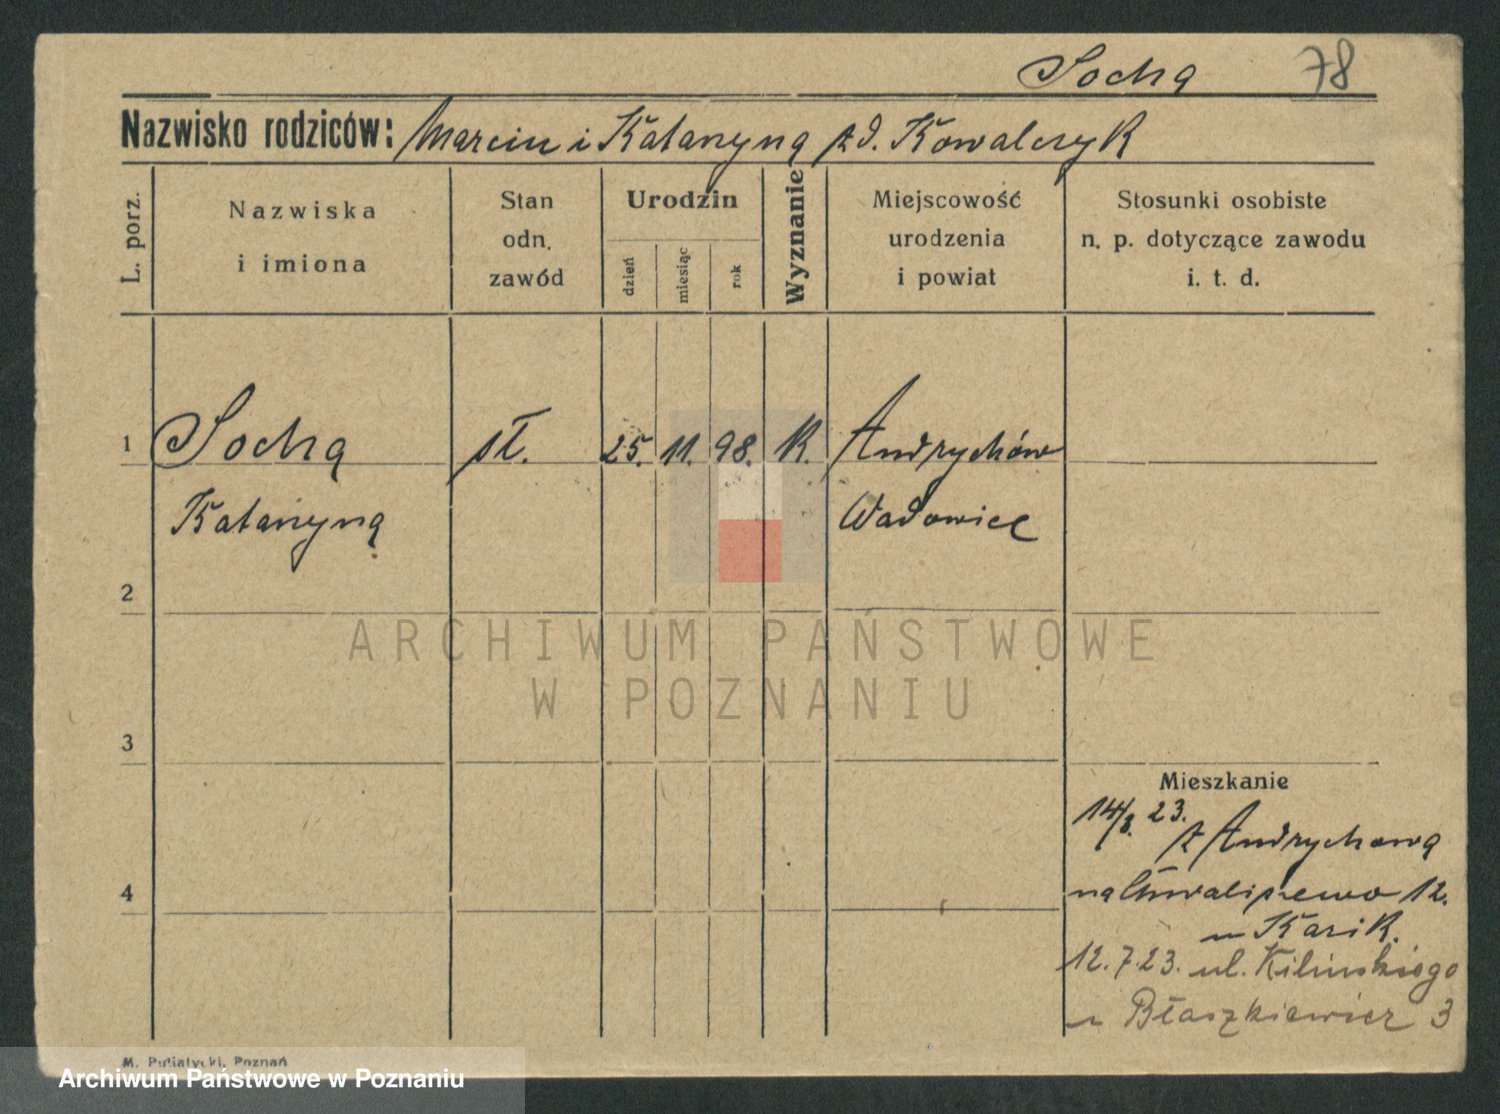 Socha 78
Nazwisko rodziców: Marcin i Katarzyna zd. Kowalczyk
L. porz.
Nazwiska
i imiona
Stan
odn.
zawód
Urodzin
dzień
miesiąc
rok
Wyznanie
Miejscowość
urodzenia
i powiat
Stosunki osobiste
n. p. dotyczące zawodu
i. t. d.
1 Socha sł. 25. 11. 98. K. Andrychów
Katarzyna Wadowice
2
ARCHIWUM PAŃSTWOWE
W POZNANIU
3
Mieszkanie
23.
z Andrychowa
4 na Chwaliszewo 12.
12.7.23. ul. Kilińskiego
Błaszkiewicz 3
M. Putiatycki, Poznań
Archiwum Państwowe w Poznaniu